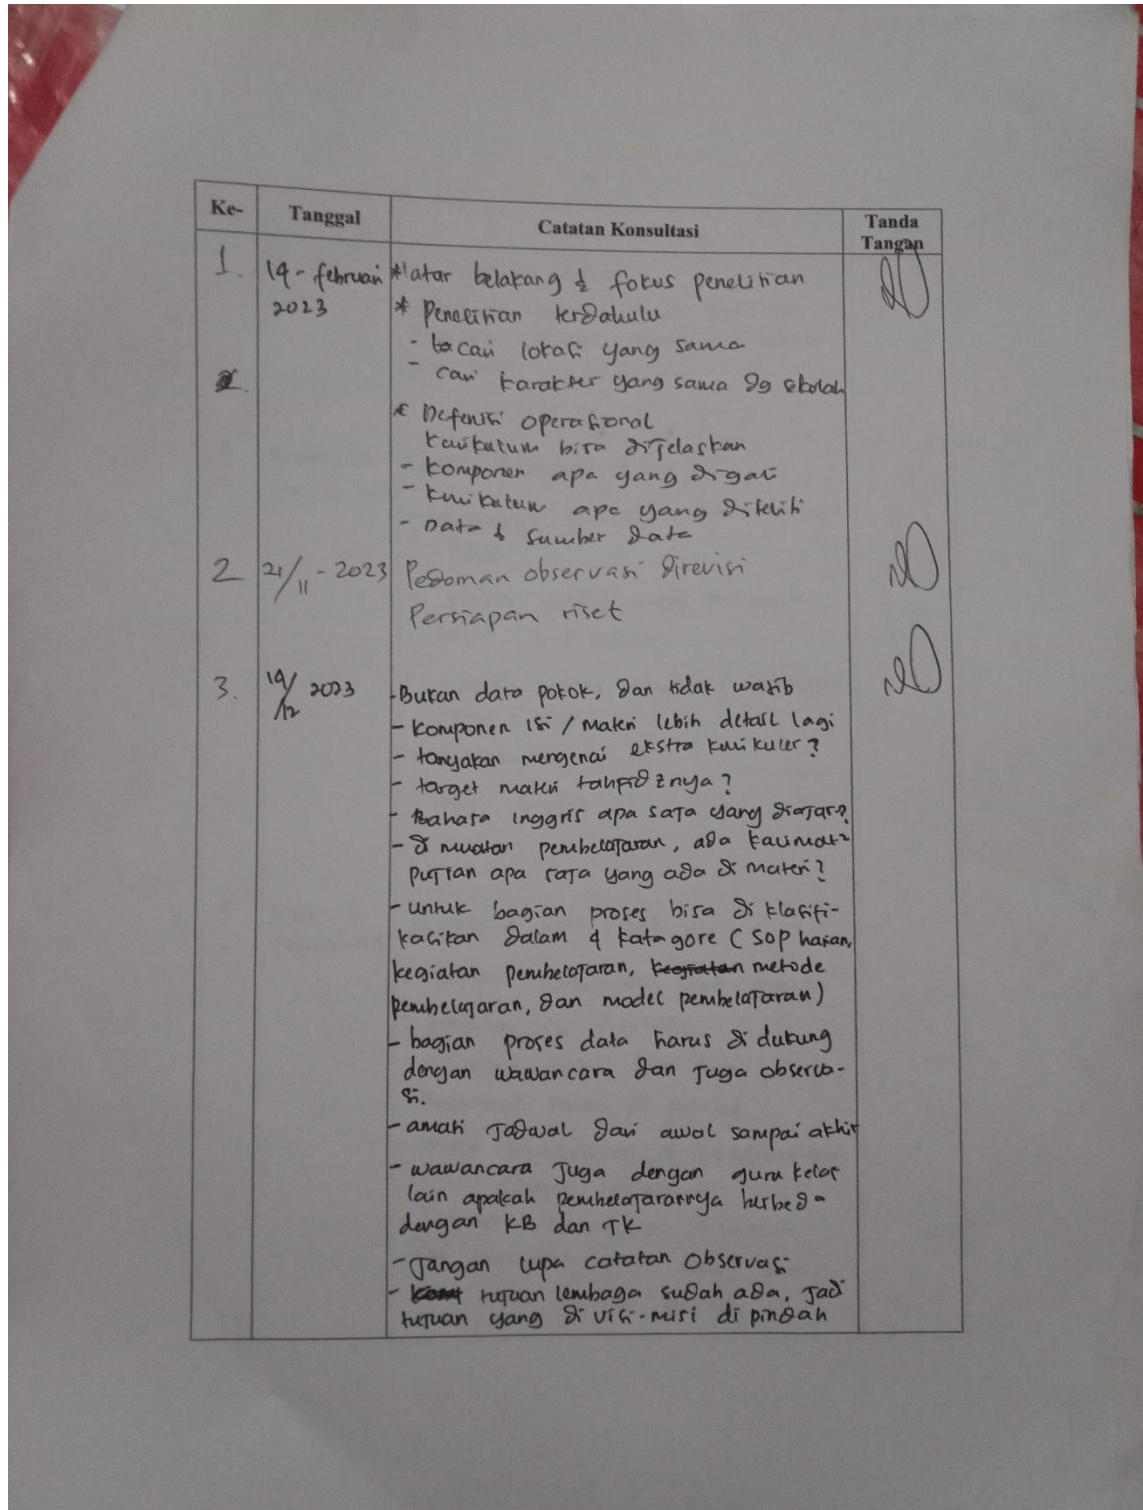 Ke- Tanggal Catatan Konsultasi Tanda Tangan
1. 14 - februari 2023 * latar belakang & fokus penelitian
* Penelitian terdahulu
- cari lokasi yang sama
- cari karakter yang sama dg sekolah
* Defenisi operasional
kurikulum bisa dijelaskan
- komponen apa yang digali
- kurikulum apa yang diteliti
- Data & sumber data
2 21/11 - 2023 Pedoman observasi direvisi
Persiapan riset
3. 19/12 2023 - Bukan data pokok, dan tidak wajib
- komponen isi / materi lebih detail lagi
- tanyakan mengenai ekstra kurikuler?
- target materi tahfidznya?
- Bahasa inggris apa saja yang diajar?
- di muatan pembelajaran, ada kalimat2
pujian apa saja yang ada di materi?
- untuk bagian proses bisa di klasifi-
kasikan dalam 4 katagore (SOP harian,
kegiatan pembelajaran, kegiatan metode
pembelajaran, dan model pembelajaran)
- bagian proses data harus di dukung
dengan wawancara dan juga observa-
si.
- amati jadwal dari awal sampai akhir
- wawancara juga dengan guru kelas
lain apakah pembelajarannya berbeda
dengan KB dan TK
- Jangan lupa catatan observasi
- tujuan lembaga sudah ada, jadi
tujuan yang di visi-misi di pindah